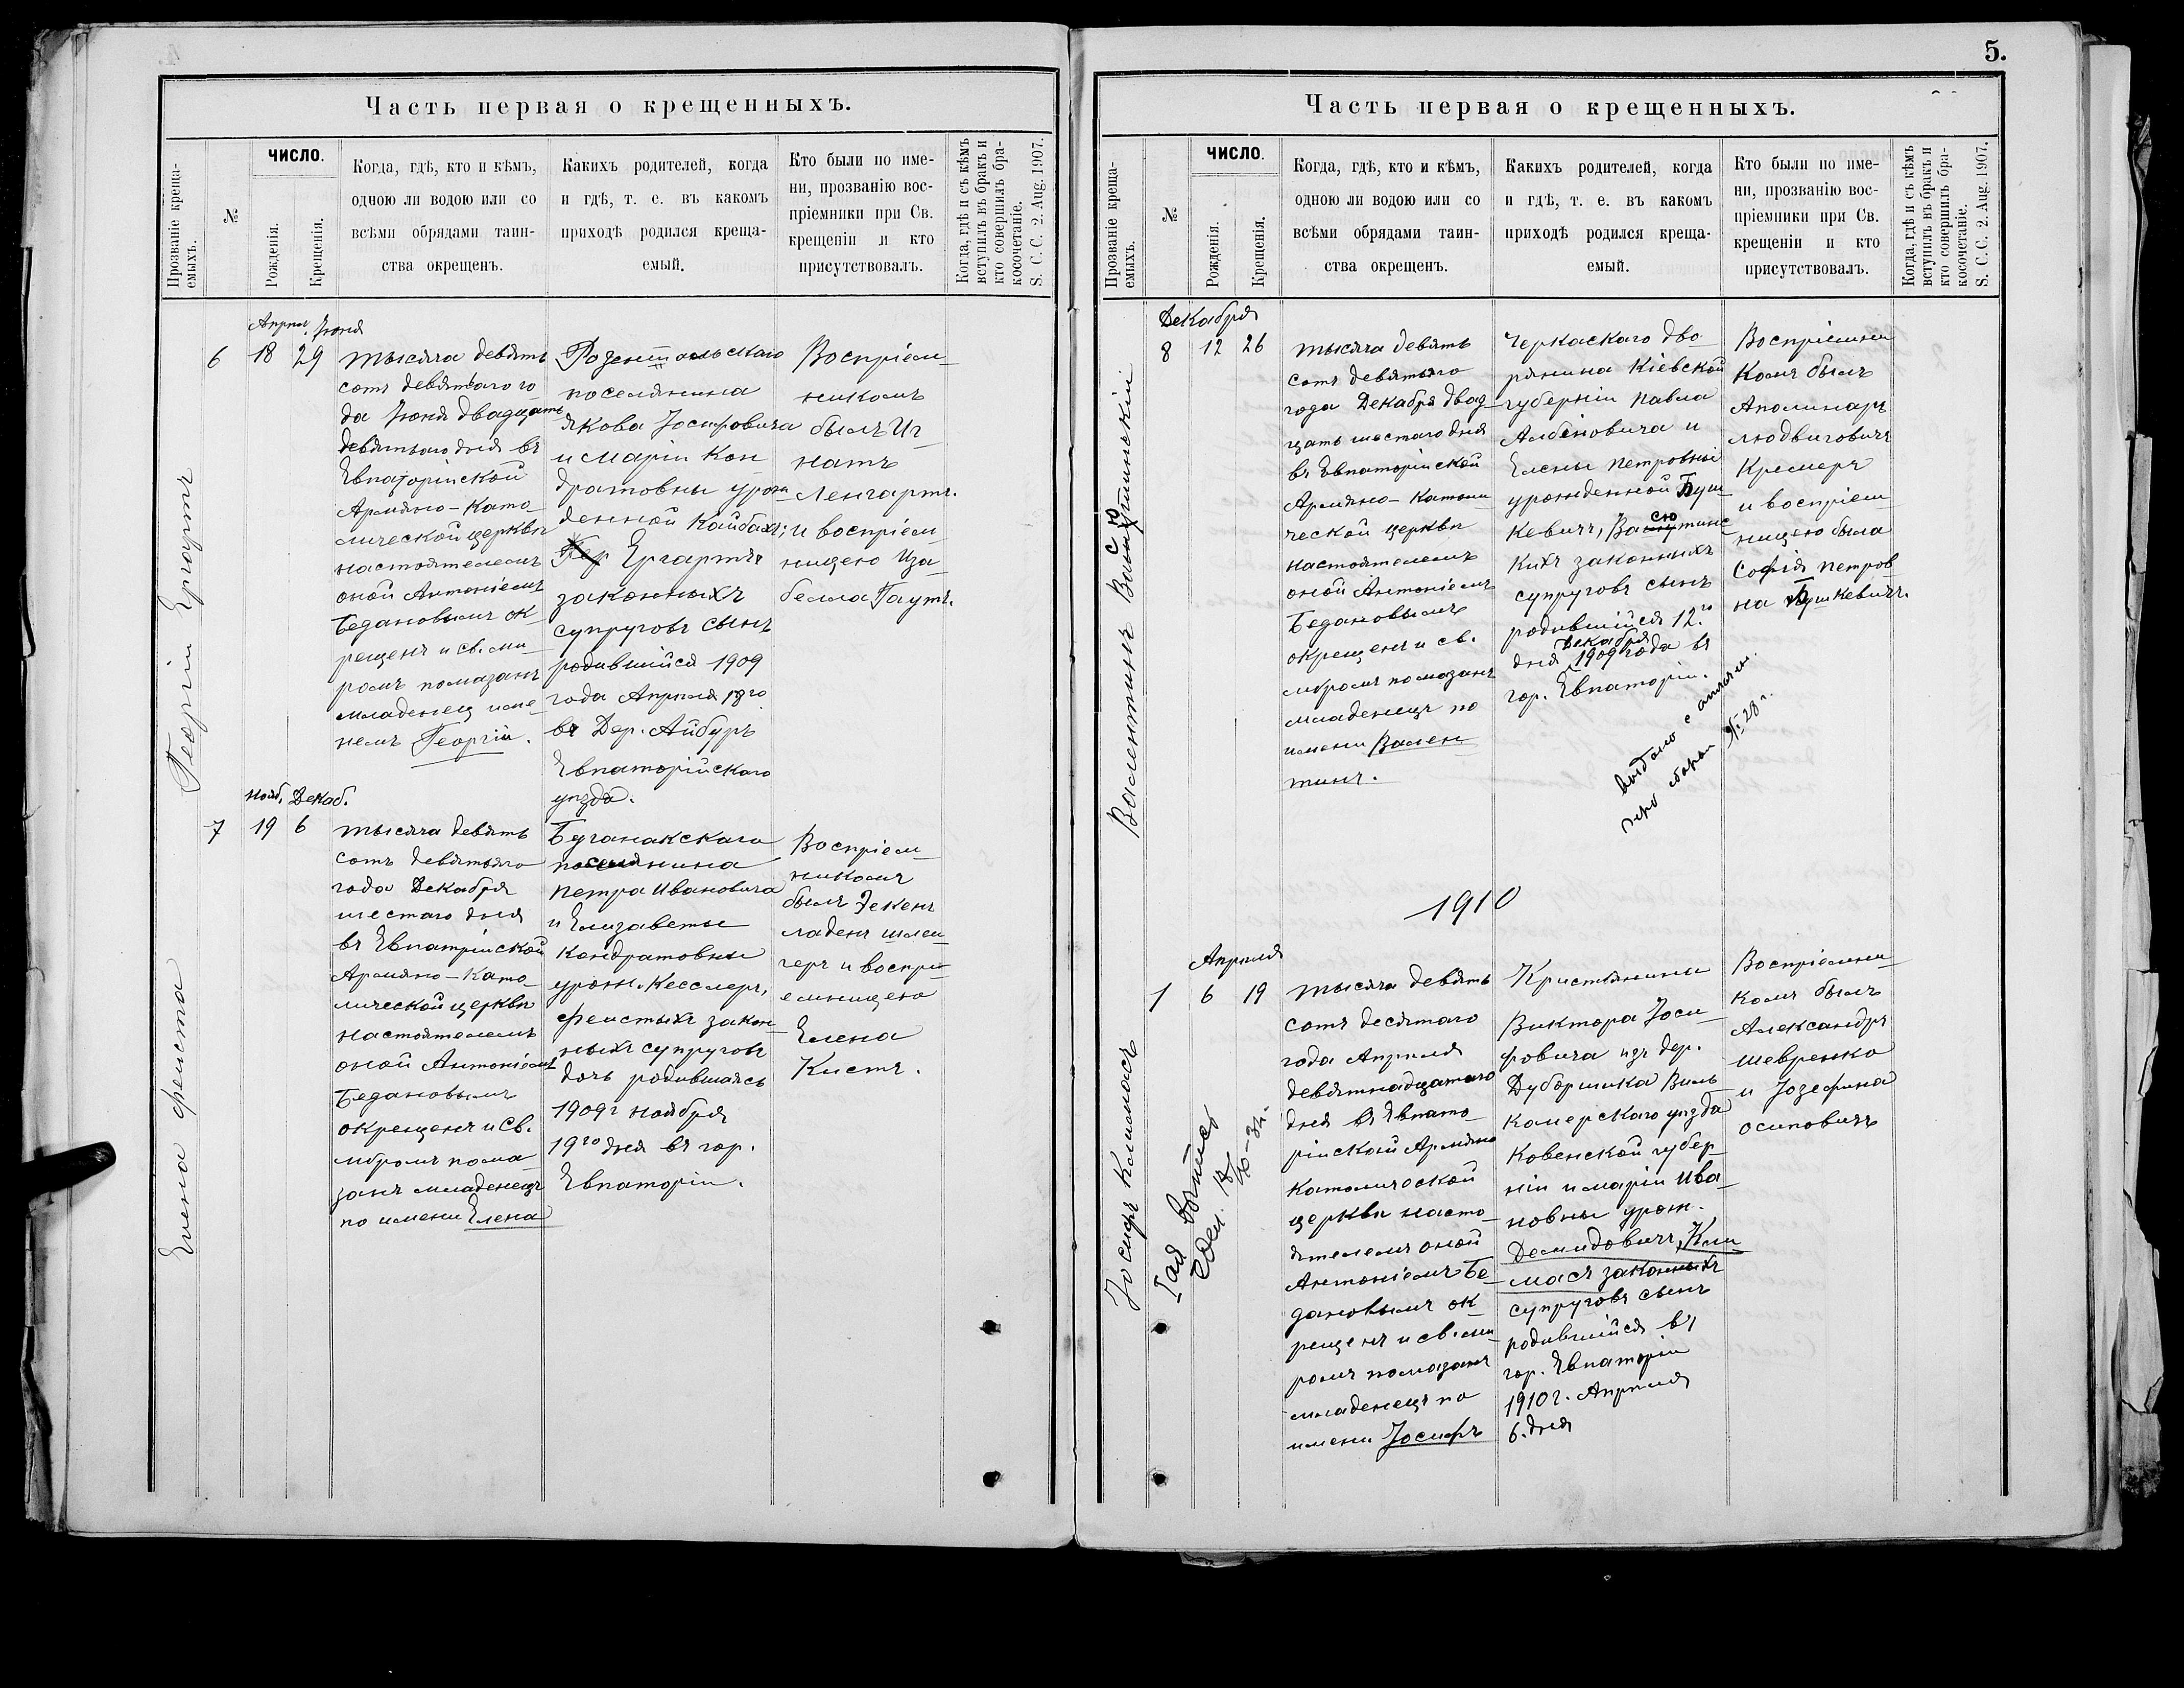 Часть первая о крещенныхъ.
Прозваніе креща-
емыхъ.
№
ЧИСЛО.
Рожденія.
Крещенія.
Когда, гдѣ, кто и кѣмъ,
одною ли водою или со
всѣми обрядами таин-
ства окрещенъ.
Какихъ родителей, когда
и гдѣ, т. е. въ какомъ
приходѣ родился креща-
емый.
Кто были по име-
ни, прозванію вос-
пріемники при Св.
крещеніи и кто
присутствовалъ.
Когда, гдѣ и съ кѣмъ
вступилъ въ бракъ и
кто совершилъ бра-
косочетаніе.
S. C. C. 2. Aug. 1907.
Георгій Ергартъ
Апрѣл. Іюня
6 18 29
тысяча девять
сотъ девятаго го
да Іюня двадцать
девятаго дня въ
Евпаторійской
Армяно-Като
лической церкви
настоятелемъ
оной Антоніемъ
Бедановымъ ок
рещенъ и св. ми
ромъ помазанъ
младенец име
немъ Георгій.
Розентальскаго
поселянина
Якова Іосифовича
и Маріи Кон
дратовны урож
денной Кайбахъ;
Ергартъ
законныхъ
супруговъ сынъ
родившійся 1909
года Апрѣля 18го
въ Дер. Айбуръ
Евпаторійскаго
уѣзда.
Воспріем
никомъ
былъ Иг
натъ
Ленгартъ.
и воспріем
ницею Иза
белла Гаутъ.
Елена Фейста
Нояб. Декаб.
7 19 6
тысяча девять
сотъ девятаго
года Декабря
шестаго дня
въ Евпатрійской
Армяно-Като
лической церкви
настоятелемъ
оной Антоніемъ
Бедановымъ
окрещенъ и Св.
мѵромъ пома
занъ младенецъ
по имени Елена
Буганакскаго
поселянина
Петра Ивановича
и Елизаветы
Кондратовны
урож. Кесслеръ,
Фейстыхъ закон
ныхъ супруговъ
дочь родившаясь
1909г Ноября
19го дня въ гор.
Евпаторіи.
Воспріем
никомъ
былъ
и воспрі
емницею
Елена
Кистъ.
5.
Часть первая о крещенныхъ.
Прозваніе креща-
емыхъ.
№
ЧИСЛО.
Рожденія.
Крещенія.
Когда, гдѣ, кто и кѣмъ,
одною ли водою или со
всѣми обрядами таин-
ства окрещенъ.
Какихъ родителей, когда
и гдѣ, т. е. въ какомъ
приходѣ родился креща-
емый.
Кто были по име-
ни, прозванію вос-
пріемники при Св.
крещеніи и кто
присутствовалъ.
Когда, гдѣ и съ кѣмъ
вступилъ въ бракъ и
кто совершилъ бра-
косочетаніе.
S. C. C. 2. Aug. 1907.
Валентинъ Васютинскій
Декабря
8 12 26
тысяча девять
сотъ девятаго
года Декабря двад
цать шестаго дня
въ Евпаторійской
Армяно-Католи
ческой церкви
настоятелемъ
оной Антоніемъ
Бедановымъ
окрещенъ и св.
мѵромъ помазанъ
младенецъ по
имени Вален
тинъ.
Черкаскаго дво
рянина Кіевской
губерніи Павла
Албиновича и
Елены Петровны
урожденной Буш
кевичъ, Васютинс
кихъ законныхъ
супруговъ сынъ
родившійся 12го
Декабря
дня 1909 года въ
гор. Евпаторіи.
Воспріемни
комъ былъ
Аполинаръ
Людвиговичъ
Кремеръ
и воспріем
ницею была
Софія Петров
на Бушкевичъ.
выдано с
сборы № 28 г.
1910
Іосифъ Климасъ
Апрѣля
1 6 19
тысяча девять
сотъ десятаго
года Апрѣля
девятнадцатаго
дня въ Евпато
рійской Армяно
Католической
церкви насто
ятелемъ оной
Антоніемъ Бе
дановымъ ок
рещенъ и св. ми
ромъ помазанъ
младенецъ по
имени Іосифъ
Кристьянины
Виктора Іоси
фовича изъ дер.
Дуборшика Виль
комерскаго уѣзда
Ковенской губер
ніи и Маріи Ива
новны урож.
Демидовичъ, Кли
масъ законныхъ
супруговъ сынъ
родившійся въ
гор. Евпаторіи
1910 г. Апрѣля
6. дня
Воспріемни
комъ былъ
Александръ
Шевренко
и Іозефина
Осиповичъ